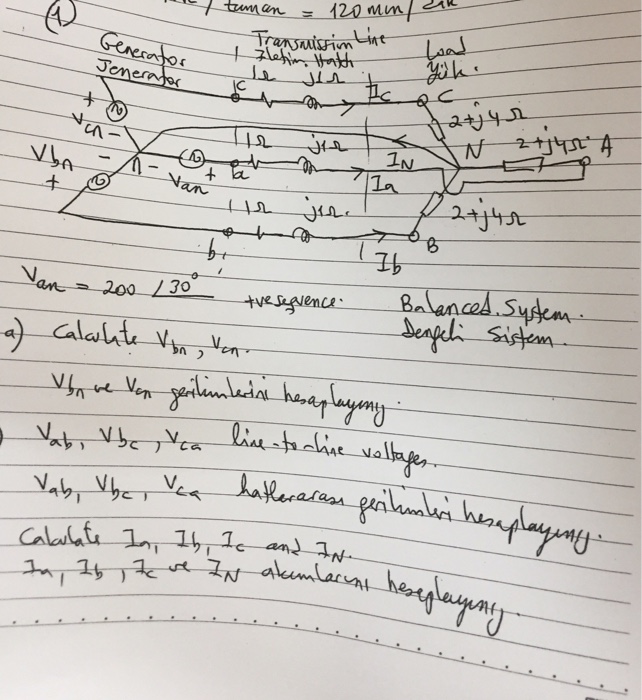 / tuman = 120 min /
1
Generator
Jeneratör
Transmission Line
İletim Hattı
Load
Yük.
1Ω j1Ω
C
Ic
C
2+j4Ω
+
Vcn -
1Ω j1Ω
IN
N
2+j4Ω A
Vbn
-
+
n - Van + a
Ia
1Ω j1Ω.
2+j4Ω
b
Ib
B
Van = 200 /30°
+ve sequence.
Balanced System.
Dengeli Sistem.
a) Calculate Vbn, Vcn.
Vbn ve Vcn gerilimlerini hesaplayınız.
) Vab, Vbc, Vca line-to-line voltages.
Vab, Vbc, Vca hatlararası gerilimleri hesaplayınız.
Calculate Ia, Ib, Ic and IN.
Ia, Ib, Ic ve IN akımlarını hesaplayınız.